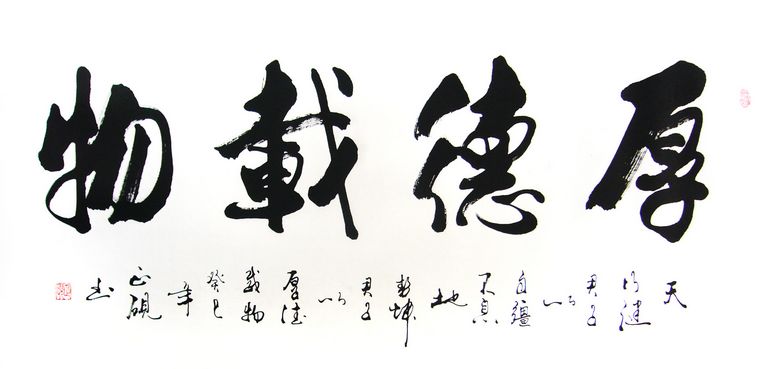 厚德載物
天行健君子以自疆不息地势坤君子以厚德載物癸巳年正硯书